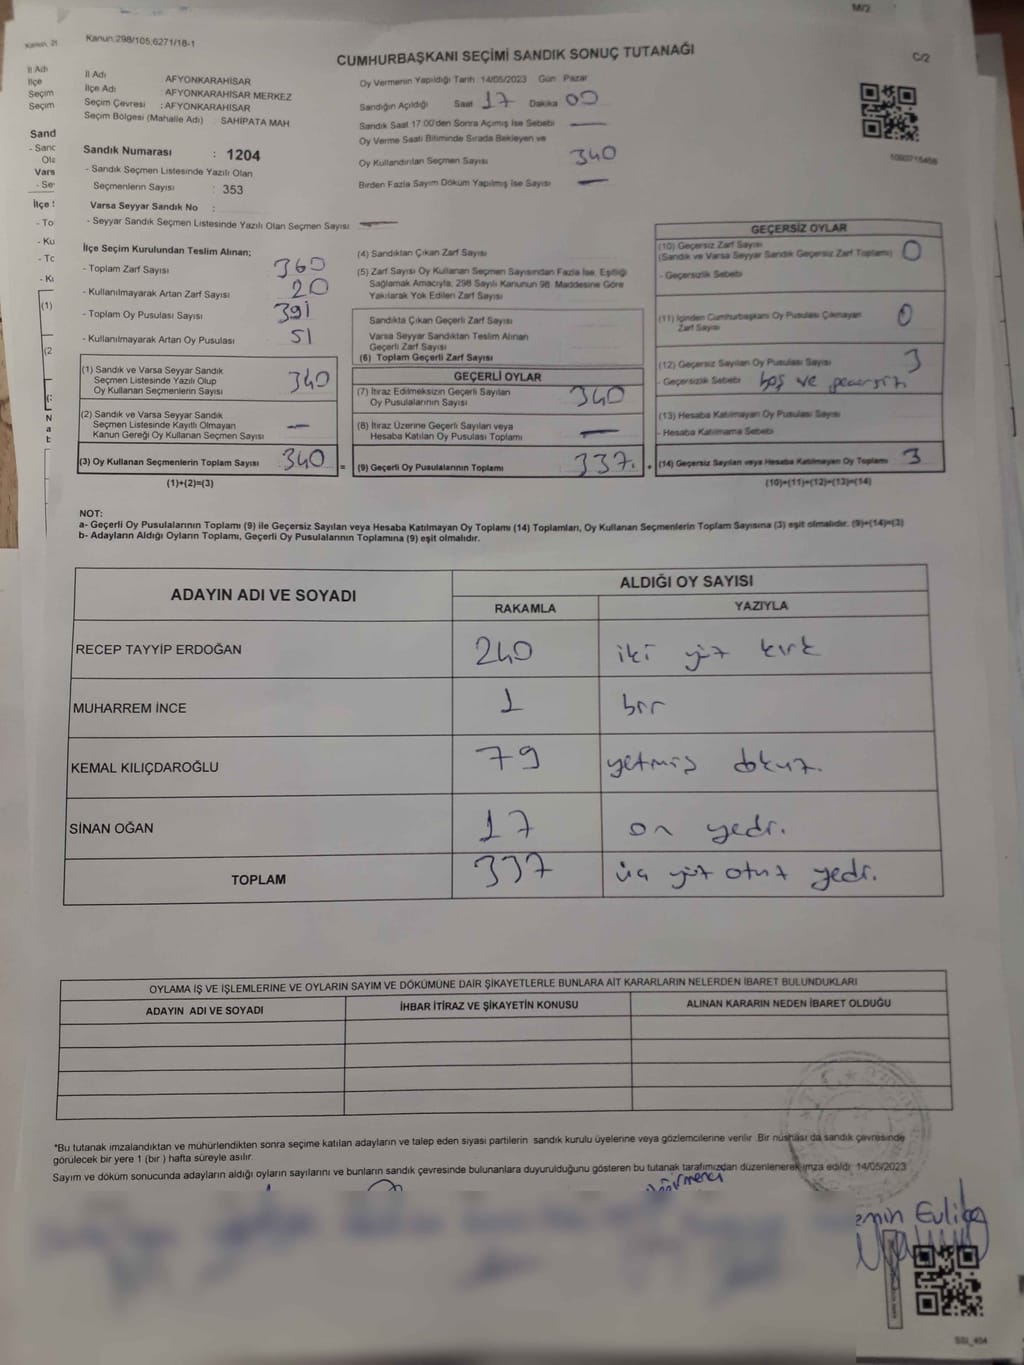 M/2
Kanun:298/105;6271/18-1
CUMHURBAŞKANI SEÇİMİ SANDIK SONUÇ TUTANAĞI
C/2
Kanun, 21
İl Adı
İlçe
Seçim
Seçim
İl Adı AFYONKARAHİSAR
İlçe Adı : AFYONKARAHİSAR MERKEZ
Seçim Çevresi : AFYONKARAHİSAR
Seçim Bölgesi (Mahalle Adı) SAHİPATA MAH
Sandık Numarası : 1204
- Sandık Seçmen Listesinde Yazılı Olan
Seçmenlerin Sayısı : 353
Varsa Seyyar Sandık No :
- Seyyar Sandık Seçmen Listesinde Yazılı Olan Seçmen Sayısı —
Oy Vermenin Yapıldığı Tarih :14/05/2023 Gün Pazar
Sandığın Açıldığı Saat 17 Dakika 00
Sandık Saat 17:00'den Sonra Açılmış İse Sebebi —
Oy Verme Saati Bitiminde Sırada Bekleyen ve
Oy Kullandırılan Seçmen Sayısı 340
Birden Fazla Sayım Döküm Yapılmış İse Sayısı —
İlçe Seçim Kurulundan Teslim Alınan;
- Toplam Zarf Sayısı 360
- Kullanılmayarak Artan Zarf Sayısı 20
- Toplam Oy Pusulası Sayısı 391
- Kullanılmayarak Artan Oy Pusulası 51
(1) Sandık ve Varsa Seyyar Sandık
Seçmen Listesinde Yazılı Olup
Oy Kullanan Seçmenlerin Sayısı 340
(2) Sandık ve Varsa Seyyar Sandık
Seçmen Listesinde Kayıtlı Olmayan
Kanun Gereği Oy Kullanan Seçmen Sayısı —
(3) Oy Kullanan Seçmenlerin Toplam Sayısı 340 =
(1)+(2)=(3)
(4) Sandıktan Çıkan Zarf Sayısı
(5) Zarf Sayısı Oy Kullanan Seçmen Sayısından Fazla İse, Eşitliği
Sağlamak Amacıyla, 298 Sayılı Kanunun 98. Maddesine Göre
Yakılarak Yok Edilen Zarf Sayısı
Sandıkta Çıkan Geçerli Zarf Sayısı
Varsa Seyyar Sandıktan Teslim Alınan
Geçerli Zarf Sayısı
(6) Toplam Geçerli Zarf Sayısı
GEÇERLİ OYLAR
(7) İtiraz Edilmeksizin Geçerli Sayılan
Oy Pusulalarının Sayısı 340
(8) İtiraz Üzerine Geçerli Sayılan veya
Hesaba Katılan Oy Pusulası Toplamı —
(9) Geçerli Oy Pusulalarının Toplamı 337. +
GEÇERSİZ OYLAR
(10) Geçersiz Zarf Sayısı
(Sandık ve Varsa Seyyar Sandık Geçersiz Zarf Toplamı) 0
- Geçersizlik Sebebi
(11) İçinden Cumhurbaşkanı Oy Pusulası Çıkmayan
Zarf Sayısı 0
(12) Geçersiz Sayılan Oy Pusulası Sayısı 3
- Geçersizlik Sebebi boş ve geçersiz
(13) Hesaba Katılmayan Oy Pusulası Sayısı
- Hesaba Katılmama Sebebi
(14) Geçersiz Sayılan veya Hesaba Katılmayan Oy Toplamı 3
(10)+(11)+(12)+(13)=(14)
NOT:
a- Geçerli Oy Pusulalarının Toplamı (9) ile Geçersiz Sayılan veya Hesaba Katılmayan Oy Toplamı (14) Toplamları, Oy Kullanan Seçmenlerin Toplam Sayısına (3) eşit olmalıdır. (9)+(14)=(3)
b- Adayların Aldığı Oyların Toplamı, Geçerli Oy Pusulalarının Toplamına (9) eşit olmalıdır.
ADAYIN ADI VE SOYADI
ALDIĞI OY SAYISI
RAKAMLA YAZIYLA
RECEP TAYYİP ERDOĞAN 240 iki yüz kırk
MUHARREM İNCE 1 bir
KEMAL KILIÇDAROĞLU 79 yetmiş dokuz.
SİNAN OĞAN 17 on yedi.
TOPLAM 337 üç yüz otuz yedi.
OYLAMA İŞ VE İŞLEMLERİNE VE OYLARIN SAYIM VE DÖKÜMÜNE DAİR ŞİKAYETLERLE BUNLARA AİT KARARLARIN NELERDEN İBARET BULUNDUKLARI
ADAYIN ADI VE SOYADI İHBAR İTİRAZ VE ŞİKAYETİN KONUSU ALINAN KARARIN NEDEN İBARET OLDUĞU
*Bu tutanak imzalandıktan ve mühürlendikten sonra seçime katılan adayların ve talep eden siyasi partilerin sandık kurulu üyelerine veya gözlemcilerine verilir. Bir nüshası da sandık çevresinde
görülecek bir yere 1 (bir) hafta süreyle asılır.
Sayım ve döküm sonucunda adayların aldığı oyların sayılarını ve bunların sandık çevresinde bulunanlara duyurulduğunu gösteren bu tutanak tarafımızdan düzenlenerek imza edildi. 14/05/2023